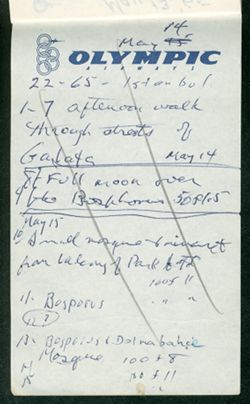 14
May 15
OLYMPIC
AIRWAYS
22-65- Istanbul
1-7 afternoon walk
through streets of
Galata May 14
8/ Full moon over
the Bosphorus 50 f1.5
May 15
Small mosque & minaret
from balcony of Park
100 f 11
11- Bosporus " "
12- ?
13- Bosporus & Dolmabahce
Mosque 100 f 8
f 11